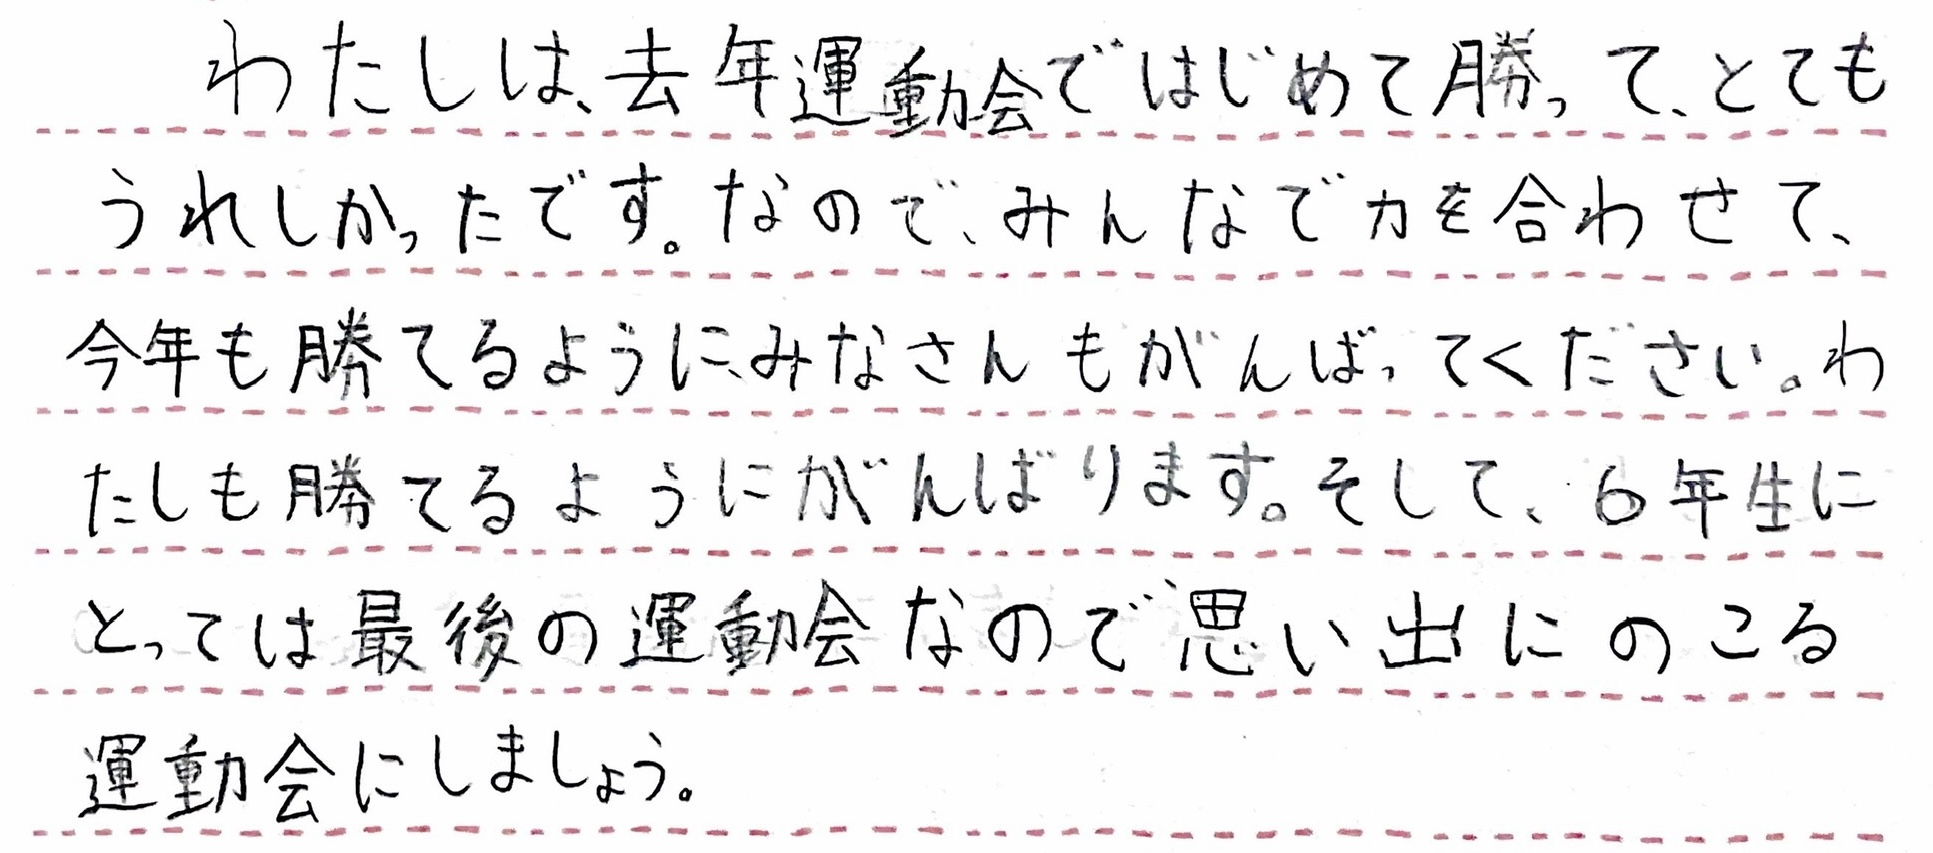 わたしは、去年運動会ではじめて勝って、とても
うれしかったです。なので、みんなで力を合わせて、
今年も勝てるように、みなさんもがんばってください。わ
たしも勝てるようにがんばります。そして、6年生に
とっては最後の運動会なので思い出にのこる
運動会にしましょう。